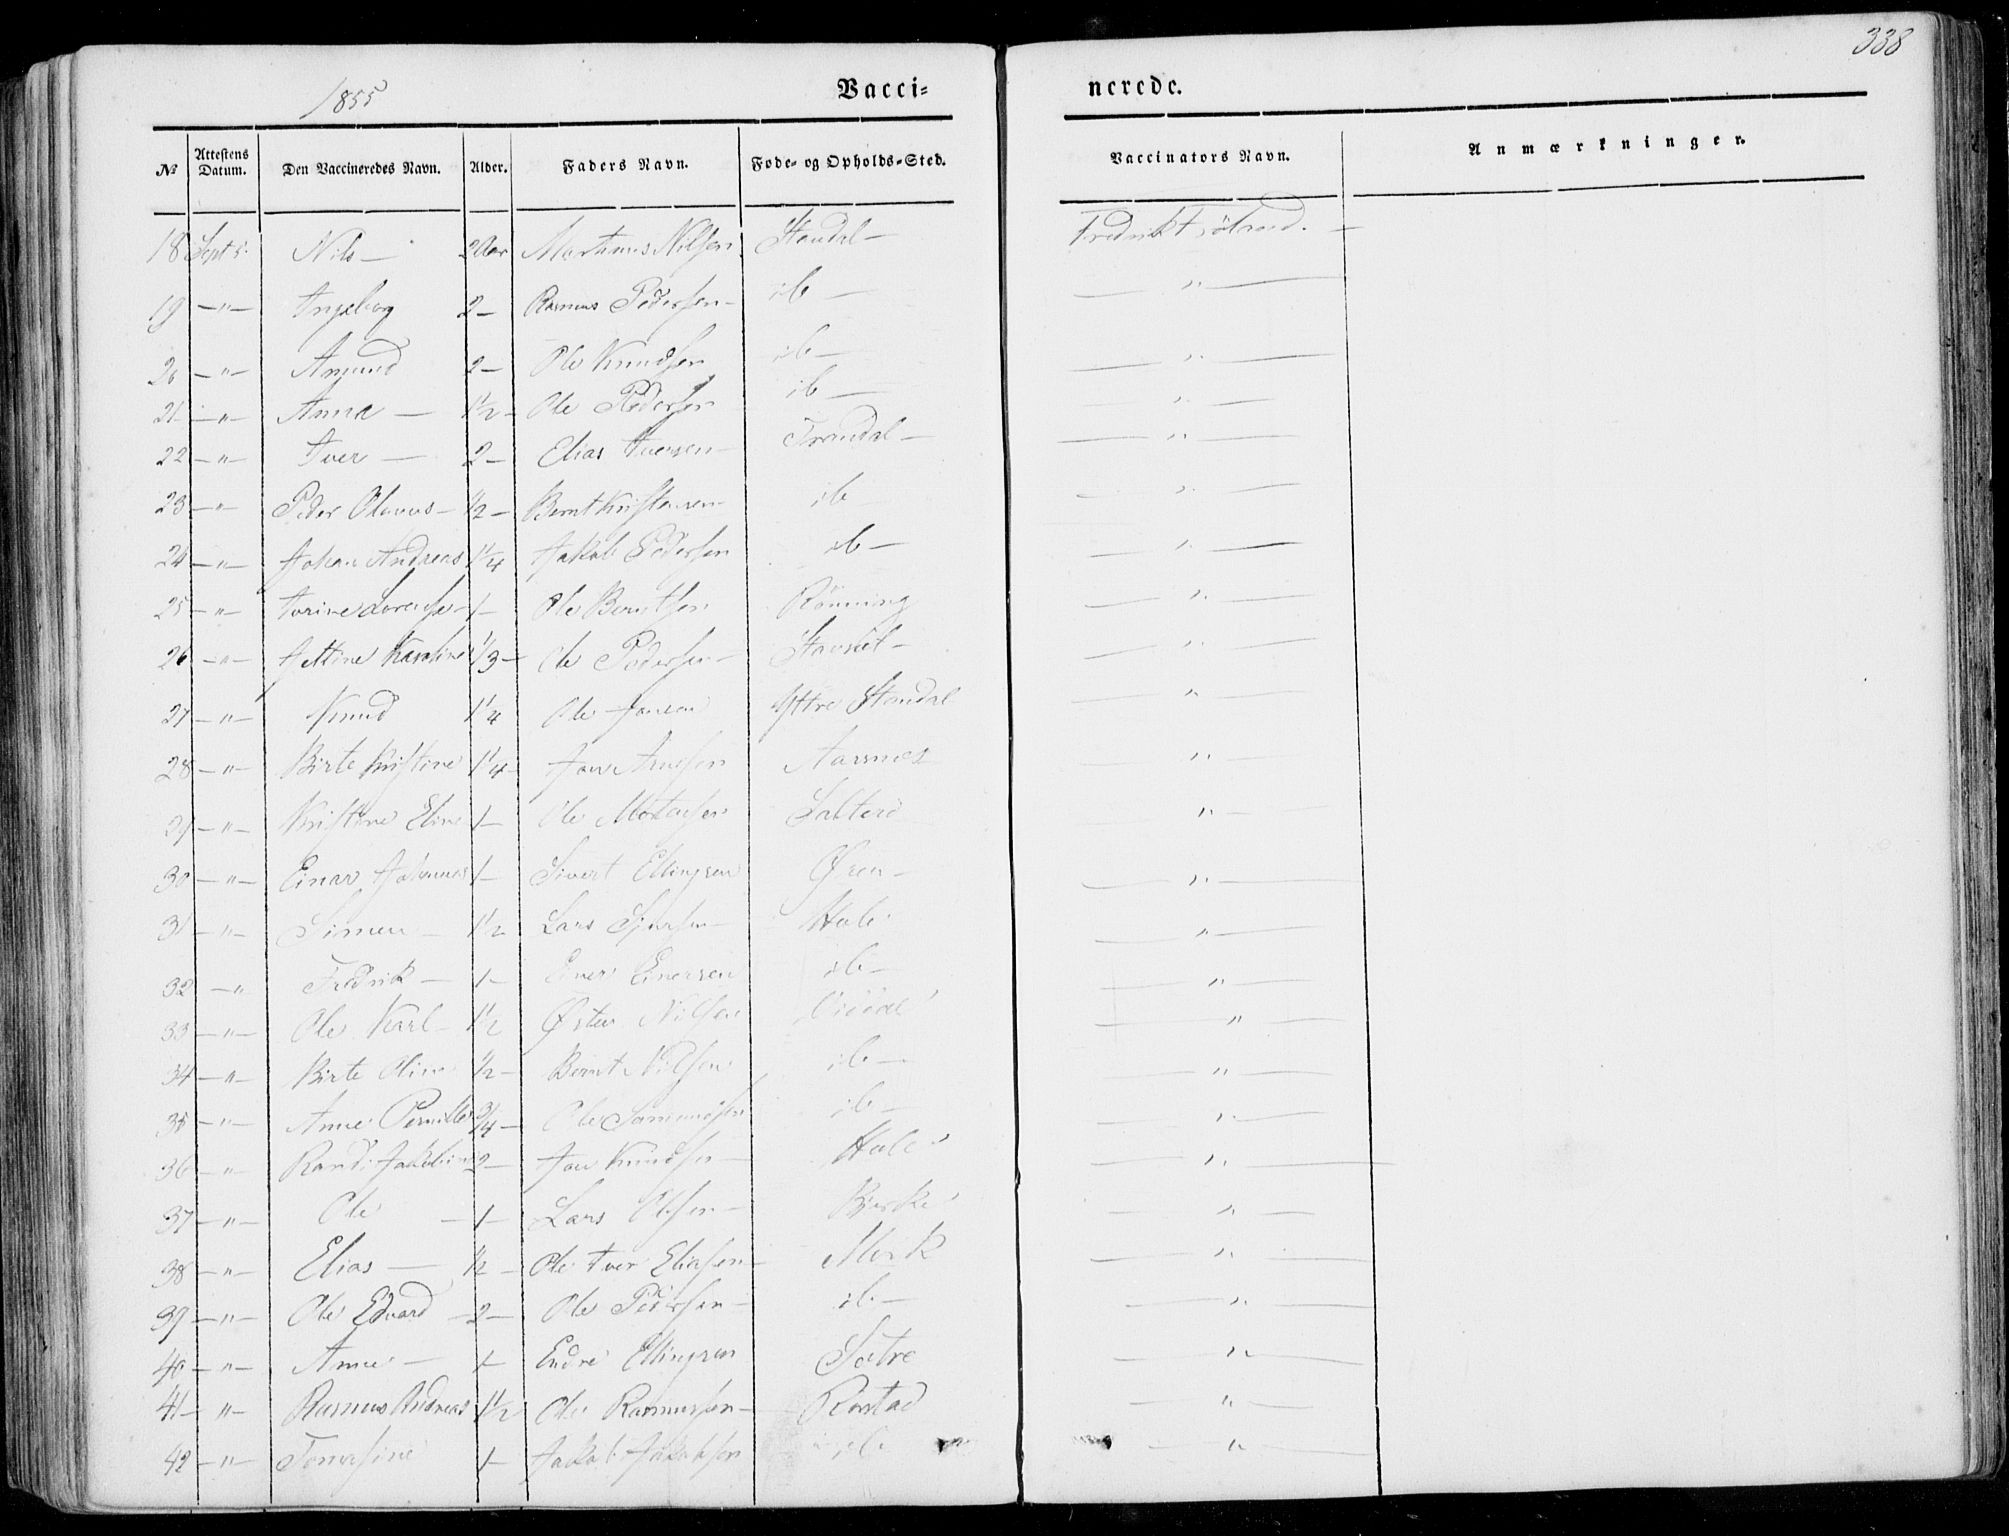 338
1855 Vacci= nerede.
No Attestens Datum. Den Vaccineredes Navn. Alder. Faders Navn. Føde- og Opholds-Sted. Vaccinators Navn. Anmærkninger.
18 Sept 5. Nils — 2 Aar Martinus Nilsen Standal — Fredrik —
19 — " — Ingeborg 2 — Rasmus Pedersen — ib — — " —
20 — " — Amund 2 — Ole Knudsen ib — — " —
21 — " — Anna — 1½ — Ole Pedersen ib — — " —
22 — " — Iver — 2 — Elias Iversen — Trandal — — " —
23 — " — Peder Olavus — ½ — Bernt Kristensen — ib — " —
24 — " — Johan Andreas 1¼ Jakob Pedersen ib — — " —
25 — " — Lorense — 1 — Ole Berntsen Rönning — " —
26 — " — Jettine Karoline ⅓ — Ole Pedersen — Stavset — — " —
27 — " — Knud 1¼ Ole Jonsen Yttre Standal — " —
28 — " — Birte Kristine 1¼ — Jon Arnesen Aarsnes — " —
29 — " — Kristine Eline 1 — Ole Mortensen — " —
30 — " — Einar Johannes 1 — Sivert Ellingsen Øren — — " —
31 — " — Simen — 1½ Lars — Hole — " —
32 — " Fredrik — 1 — Einer Einersen ib — — " —
33 — " — Ole Karl — 1½ Østen Nilsen — " —
34 — " — Birte Oline ½ — Bernt Nilsen ib — — " —
35 — " — Anne Pernille ¾ — Ole ib — — " —
36 — " Randi Jakobine 2 — Jon Knudsen — Hole — " —
37 — " — Ole — 1 — Lars Olsen — Bjerke — " —
38 — " — Elias — ½ — Ole Iver Eliasen — Mork — " —
39 — " — Ole Edvard — 2 — Ole Pedersen — ib — — " —
40 — " — Anne — 1 — Endre Ellingsen Sætre — " —
41 — " — Rasmus Andreas 1½ Ole Rasmussen — — " —
42 — " — Tomasine 1 — Jakob Jakobsen ib — " —